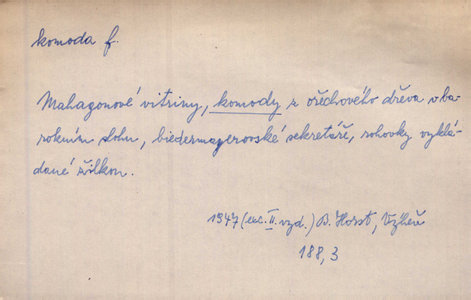 komoda f.
Mahagonové vitriny, komody z ořechového dřeva v ba
rokním slohu, biedermayerovské sekretáře, rohovky vyklá-
dané žilkou.
1947 (exc. II. vyd.) B. Horst, Výheň
188, 3